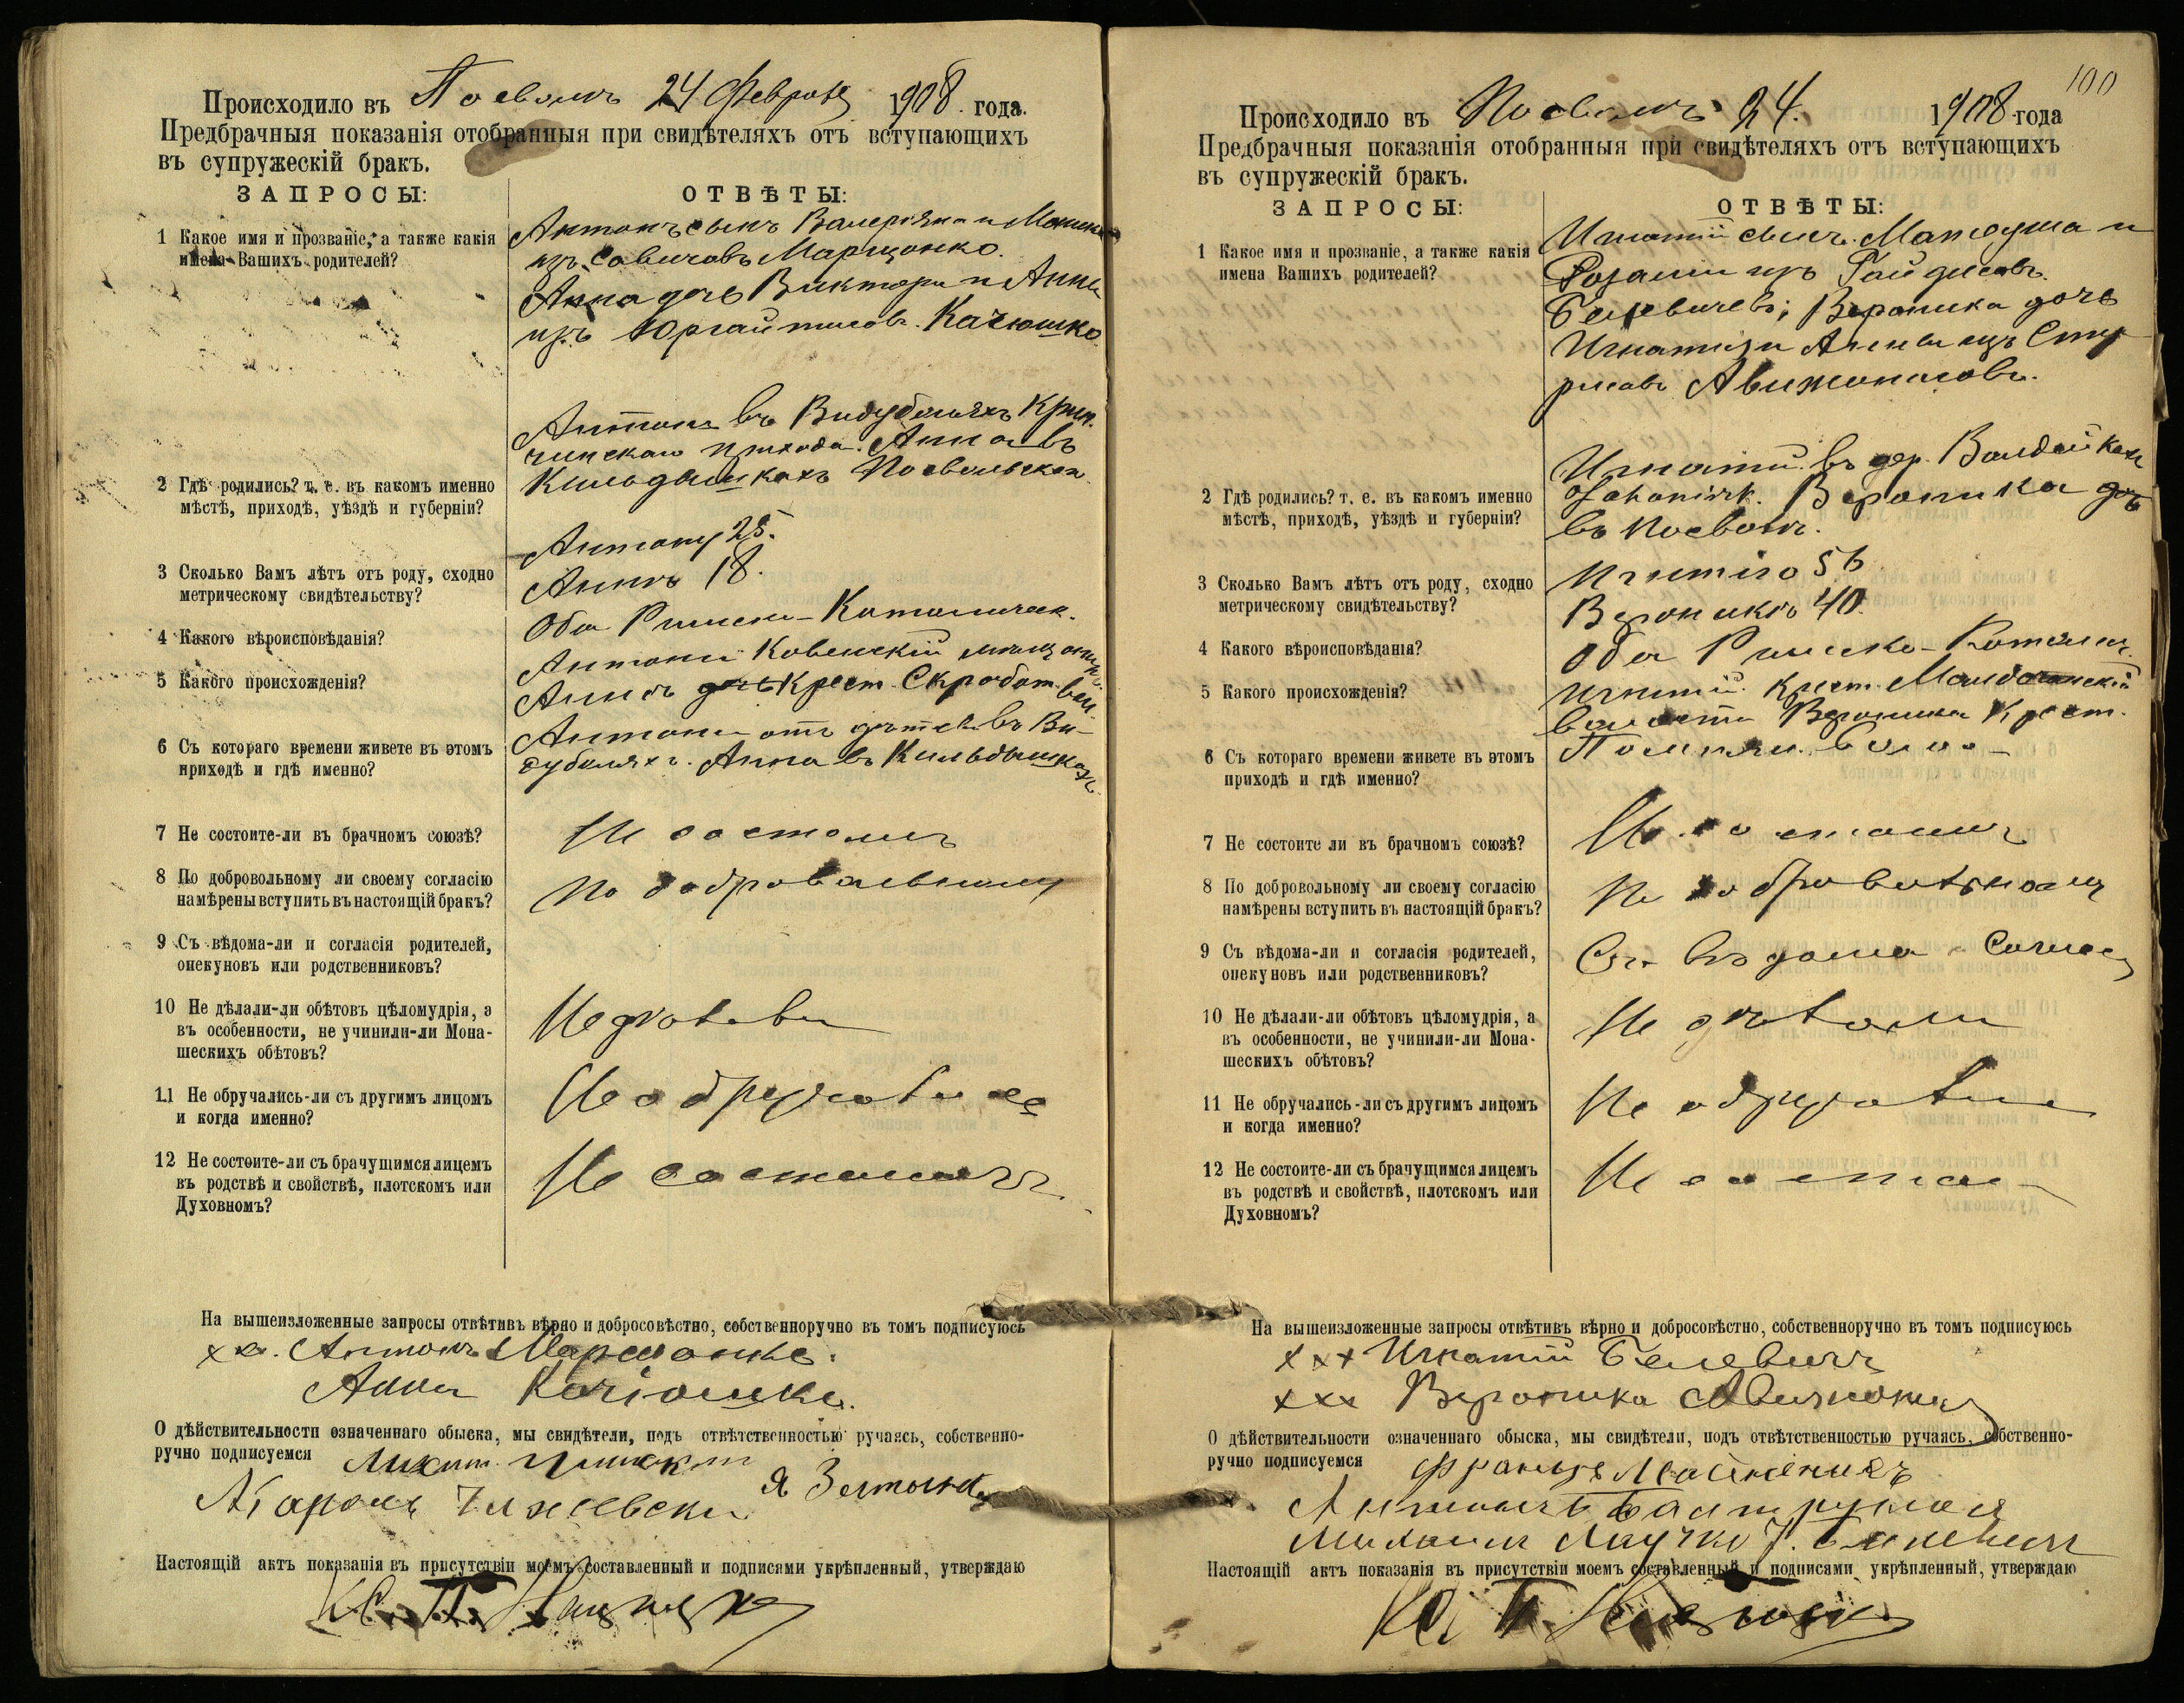 Происходило въ Посволь 24 Февраля 1908 года.
Предбрачныя показанія отобранныя при свидѣтеляхъ отъ вступающихъ
въ супружескій бракъ.
ЗАПРОСЫ: ОТВѢТЫ:
1 Какое имя и прозваніе, а также какія
имена Вашихъ родителей?
Антонъ сынъ Валеріяна и
изъ Савичовъ Марцонко.
Анна дочь Виктора и Анны
изъ Юргайтисовъ Качюшко
2 Гдѣ родились? т. е. въ какомъ именно
мѣстѣ, приходѣ, уѣздѣ и губерніи?
Антонъ въ Видуболяхъ Крин-
чинскаго прихода. Анна въ
Кильдишкахъ Посвольскаго
3 Сколько Вамъ лѣтъ отъ роду, сходно
метрическому свидѣтельству?
Антону 25.
Аннѣ 18.
4 Какого вѣроисповѣданія?
Оба Римско-Католическ.
5 Какого происхожденія?
Антонъ Ковенскій мѣщанинъ
Анна дочь Крест. Скробот. вол.
6 Съ котораго времени живете въ этомъ
приходѣ и гдѣ именно?
Антонъ отъ дѣтей въ Ви-
дуболяхъ. Анна въ Кильдишкахъ
7 Не состоите-ли въ брачномъ союзѣ?
Не состоимъ
8 По добровольному ли своему согласію
намѣрены вступить въ настоящій бракъ?
По добровольному
9 Съ вѣдома-ли и согласія родителей,
опекуновъ или родственниковъ?
10 Не дѣлали-ли обѣтовъ цѣломудрія, а
въ особенности, не учинили-ли Мона-
шескихъ обѣтовъ?
Не дѣлали
11 Не обручались-ли съ другимъ лицомъ
и когда именно?
Не обручались
12 Не состоите-ли съ брачущимся лицемъ
въ родствѣ и свойствѣ, плотскомъ или
Духовномъ?
Не состоимъ
На вышеизложенные запросы отвѣтивъ вѣрно и добросовѣстно, собственноручно въ томъ подписуюсь
Антонъ Марцонко.
Анна Качюшко.
О дѣйствительности означеннаго обыска, мы свидѣтели, подъ отвѣтственностью ручаясь, собственно-
ручно подписуемся
Кароль
Настоящій актъ показанія въ присутствіи моемъ составленный и подписями укрѣпленный, утверждаю
100
Происходило въ Посволь 24. 1908 года
Предбрачныя показанія отобранныя при свидѣтеляхъ отъ вступающихъ
въ супружескій бракъ.
ЗАПРОСЫ: ОТВѢТЫ:
1 Какое имя и прозваніе, а также какія
имена Вашихъ родителей?
Игнатій сынъ Матеуша и
Розаліи изъ Гайдисовъ
Белевичевъ; Вероника дочь
Игнатія и Анны изъ Сту-
рисовъ Авижонисовъ.
2 Гдѣ родились? т. е. въ какомъ именно
мѣстѣ, приходѣ, уѣздѣ и губерніи?
Игнатій въ дер. Валдейкахъ
Вероника
въ Посволь.
3 Сколько Вамъ лѣтъ отъ роду, сходно
метрическому свидѣтельству?
Игнатію 56
Вероникѣ 40.
4 Какого вѣроисповѣданія?
Оба Римско-Католич.
5 Какого происхожденія?
Игнатій Крест.
волости Вероника Крест.
6 Съ котораго времени живете въ этомъ
приходѣ и гдѣ именно?
7 Не состоите ли въ брачномъ союзѣ?
Не состоимъ
8 По добровольному ли своему согласію
намѣрены вступить въ настоящій бракъ?
По добровольному
9 Съ вѣдома-ли и согласія родителей,
опекуновъ или родственниковъ?
Съ вѣдома
10 Не дѣлали-ли обѣтовъ цѣломудрія, а
въ особенности, не учинили-ли Мона-
шескихъ обѣтовъ?
Не дѣлали
11 Не обручались-ли съ другимъ лицомъ
и когда именно?
Не обручались
12 Не состоите-ли съ брачущимся лицемъ
въ родствѣ и свойствѣ, плотскомъ или
Духовномъ?
Не
На вышеизложенные запросы отвѣтивъ вѣрно и добросовѣстно, собственноручно въ томъ подписуюсь
xxx Игнатій Белевичъ
xxx Вероника
О дѣйствительности означеннаго обыска, мы свидѣтели, подъ отвѣтственностью ручаясь, собственно-
ручно подписуемся
Францъ
Настоящій актъ показанія въ присутствіи моемъ составленный и подписями укрѣпленный, утверждаю